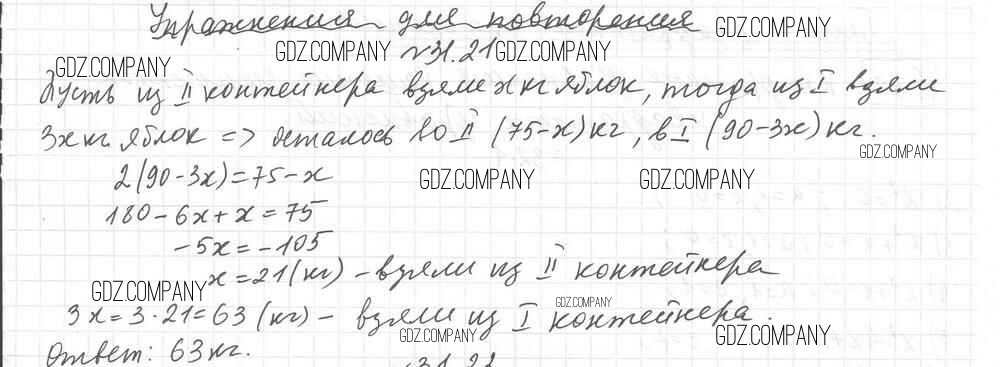 Упражнения для повторения GDZ.COMPANY
GDZ.COMPANY №31.21 GDZ.COMPANY
GDZ.COMPANY
Пусть из II контейнера взяли x кг яблок, тогда из I взяли
3x кг яблок => осталось во II (75-x) кг, в I (90-3x) кг.
GDZ.COMPANY
2(90-3x)=75-x GDZ.COMPANY GDZ.COMPANY
180-6x+x=75
-5x=-105
x=21(кг) - взяли из II контейнера
GDZ.COMPANY
3x=3·21=63 (кг) - взяли из I контейнера.
GDZ.COMPANY
GDZ.COMPANY GDZ.COMPANY
Ответ: 63 кг.